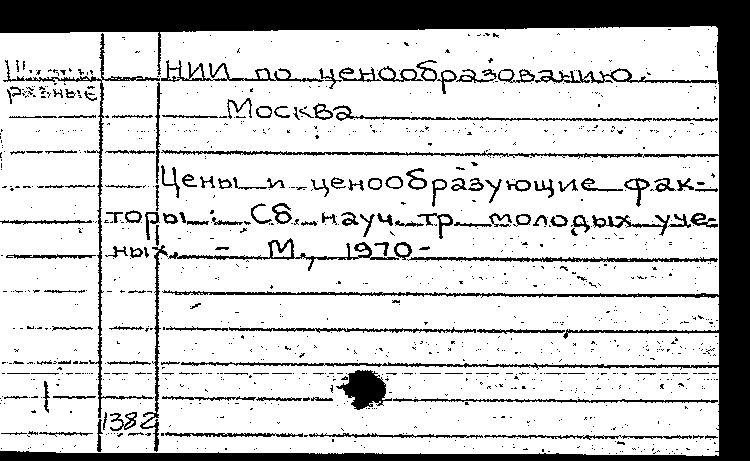 Шифры
разные
НИИ по ценообразованию.
Москва
Цены и ценообразующие фак-
торы : Сб. науч. тр. молодых уче-
ных. - М., 1970-
1382